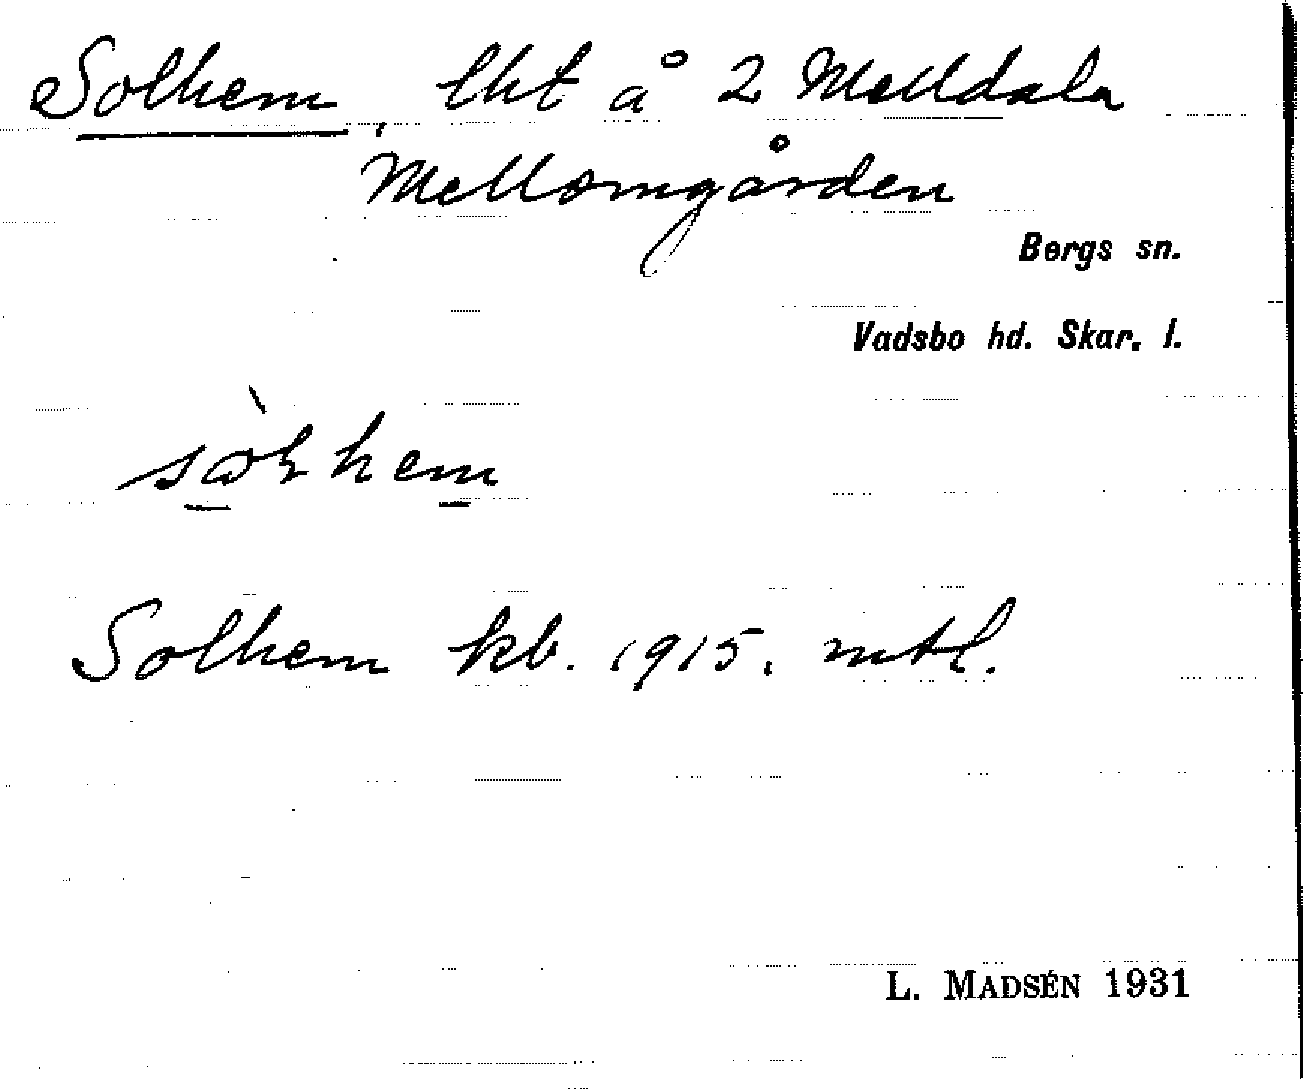 Solhem, lht å 2 Melldala
Mellomgården
Bergs sn.
Vadsbo hd. Skar. l.
Solhem kb. 1915. mtl.
L. MADSÉN 1931